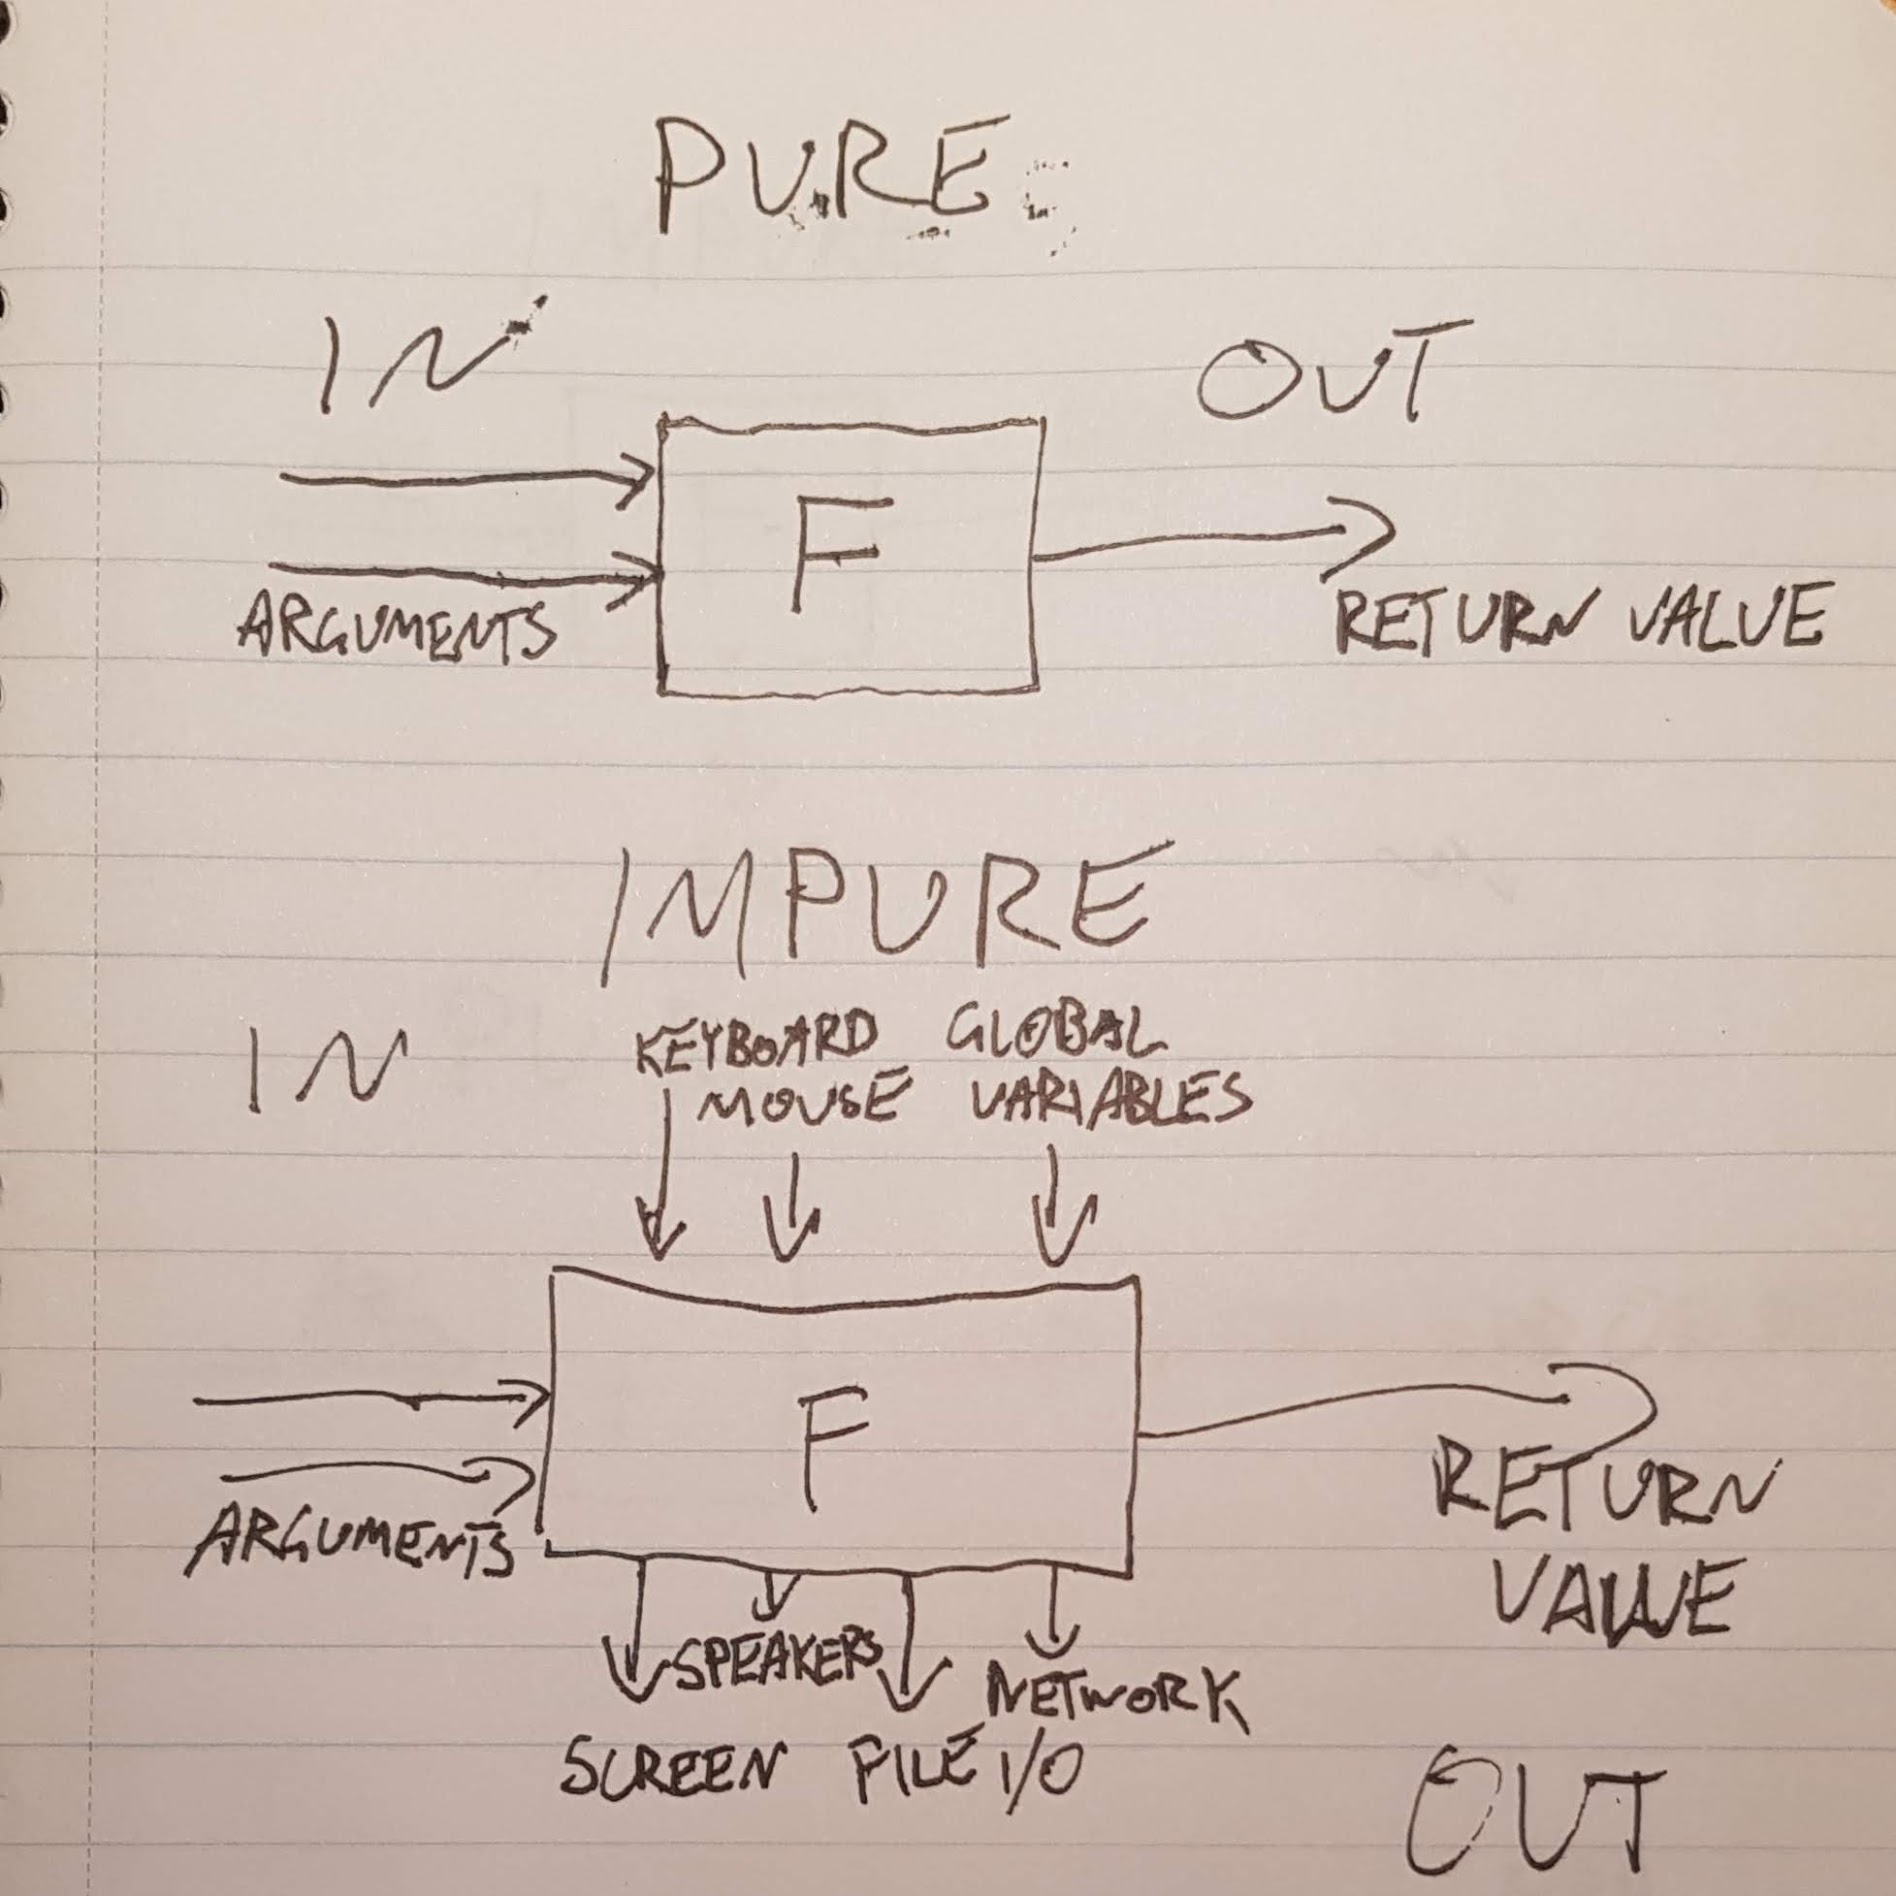 PURE
IN
OUT
F
ARGUMENTS
RETURN VALUE
IMPURE
IN
KEYBOARD GLOBAL
MOUSE VARIABLES
F
ARGUMENTS
RETURN
VALUE
SPEAKERS
NETWORK
SCREEN FILE I/O
OUT